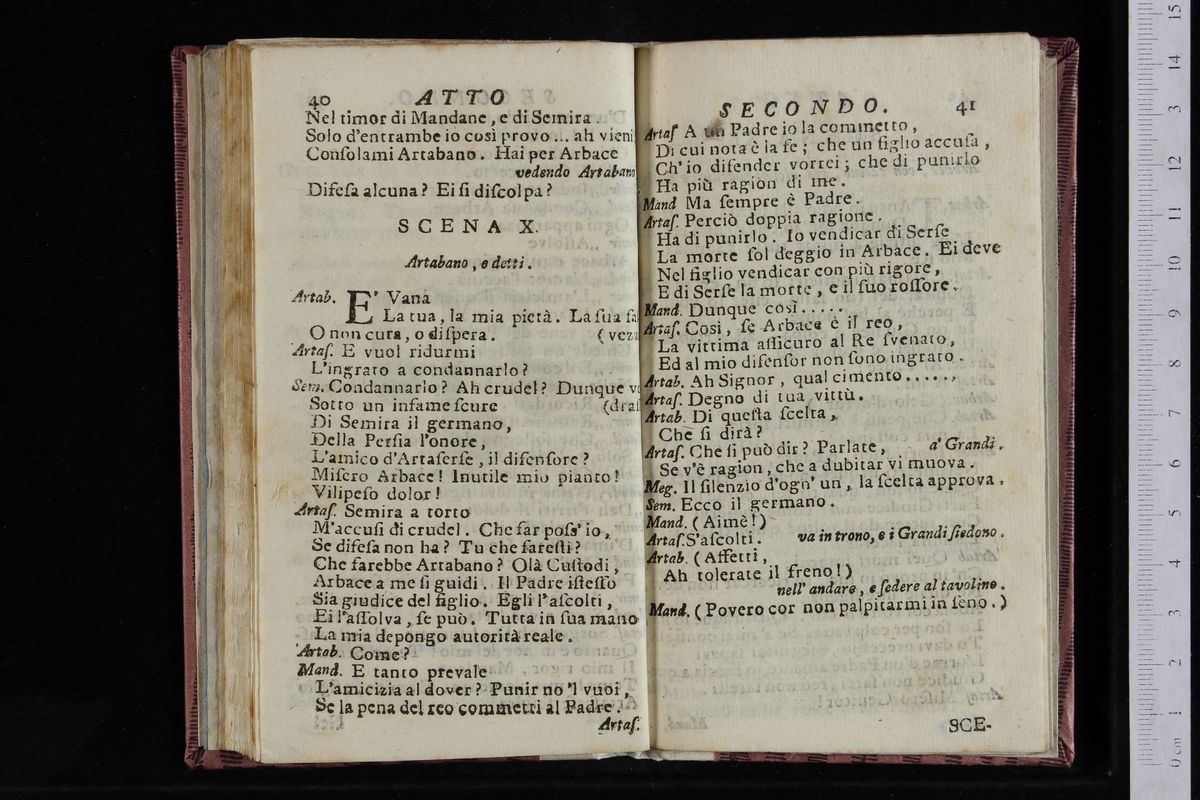 40 ATTO
Nel timor di Mandane, e di Semira.
Solo d'entrambe io così provo... ah vieni
Conſolami Artabano. Hai per Arbace
vedendo Artabano
Difeſa alcuna? Ei ſi diſcolpa?
SCENA X.
Artabano, e detti.
Artab. E' Vana
La tua, la mia pietà. La ſua ſal
O non cura, o diſpera. (vezz
Artaſ. E vuol ridurmi
L'ingrato a condannarlo?
Sem. Condannarlo? Ah crudel? Dunque ve
Sotto un infame ſcure (draſ
Di Semira il germano,
Della Perſia l'onore,
L'amico d'Artaſerſe, il difenſore?
Miſero Arbace! Inutile mio pianto!
Vilipeſo dolor!
Artaſ. Semira a torto
M'accuſi di crudel. Che far poſs' io,
Se difeſa non ha? Tu che fareſti?
Che farebbe Artabano? Olà Cuſtodi,
Arbace a me ſi guidi. Il Padre iſteſſo
Sia giudice del figlio. Egli l'aſcolti,
Ei l'aſſolva, ſe può. Tutta in ſua mano
La mia depongo autorità reale.
Artab. Come?
Mand. E tanto prevale
L'amicizia al dover? Punir no 'l vuoi,
Se la pena del reo commetti al Padre.
Artaſ.
SECONDO. 41
Artaſ A un Padre io la commetto,
Di cui nota è la fe; che un figlio accuſa,
Ch' io difender vorrei; che di punirlo
Ha più ragion di me.
Mand Ma ſempre è Padre.
Artaſ. Perciò doppia ragione.
Ha di punirlo. Io vendicar di Serſe
La morte ſol deggio in Arbace. Ei deve
Nel figlio vendicar con più rigore,
E di Serſe la morte, e il ſuo roſſore.
Mand. Dunque così.....
Artaſ. Così, ſe Arbace è il reo,
La vittima aſſicuro al Re ſvenato,
Ed al mio difenſor non ſono ingrato.
Artab. Ah Signor, qual cimento.....,
Artaſ. Degno di tua vittù.
Artab. Di queſta ſcelta,
Che ſi dirà?
Artaſ. Che ſi può dir? Parlate, a' Grandi.
Se v'è ragion, che a dubitar vi muova.
Meg. Il ſilenzio d'ogn' un, la ſcelta approva.
Sem. Ecco il germano.
Mand. (Aimè!)
Artaſ. S'aſcolti. va in trono, e i Grandi ſiedono.
Artab. (Affetti,
Ah tolerate il freno!)
nell' andare, e ſedere al tavolino.
Mand. (Povero cor non palpitarmi in ſeno.)
SCE-